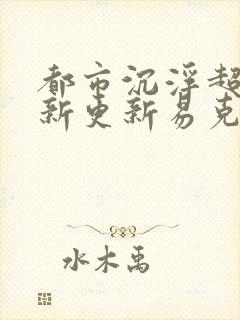 都市沉浮超
新更新易克
水木禹